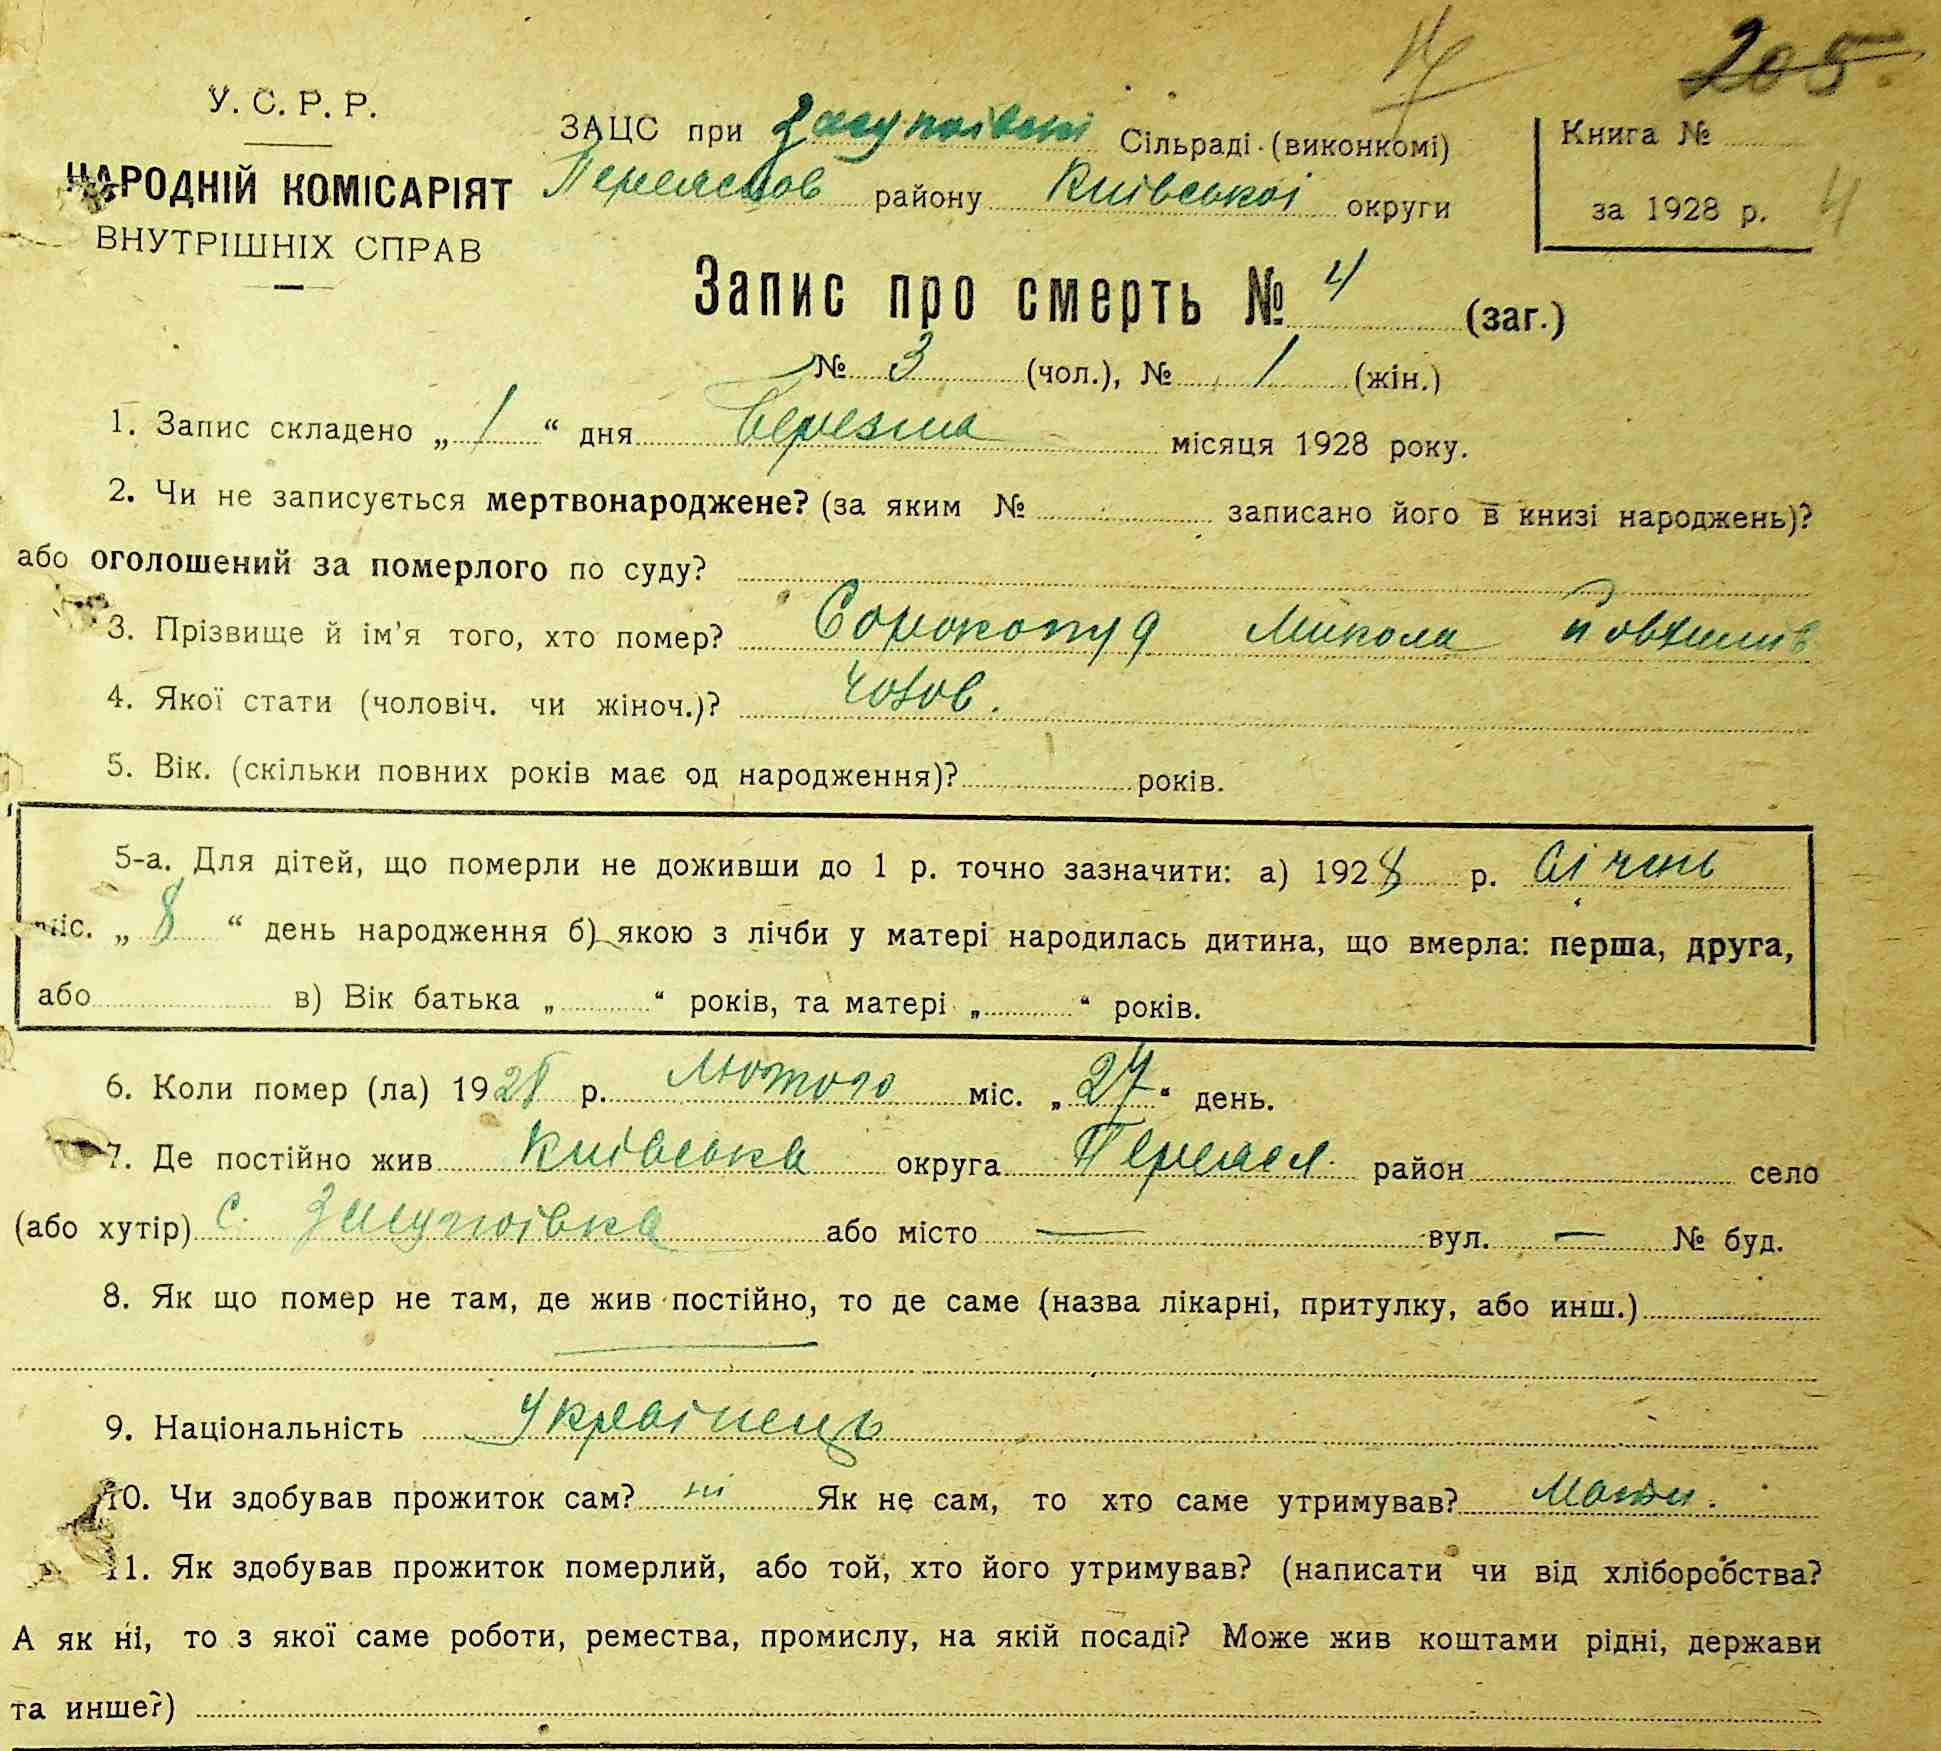 17 205
У. С. Р. Р.
НАРОДНІЙ КОМІСАРІЯТ
ВНУТРІШНІХ СПРАВ
ЗАЦС при Засупоівскі Сільраді (виконкомі)
Переяслов району Київської округи
Книга №
за 1928 р. 4
Запис про смерть № 4 (заг.)
№ 3 (чол.), № 1 (жін.)
1. Запис складено „ 1 “ дня Березня місяця 1928 року.
2. Чи не записується мертвонароджене? (за яким № записано його в книзі народжень)?
або оголошений за померлого по суду?
3. Прізвище й ім'я того, хто помер? Сорокопуд Микола
4. Якої стати (чоловіч. чи жіноч.)? чолов.
5. Вік. (скільки повних років має од народження)? років.
5-а. Для дітей, що померли не доживши до 1 р. точно зазначити: а) 1928 р. Січень
міс. „ 8 “ день народження б) якою з лічби у матері народилась дитина, що вмерла: перша, друга,
або в) Вік батька „ “ років, та матері „ “ років.
6. Коли помер (ла) 1928 р. Лютого міс. „ 27 “ день.
7. Де постійно жив Київська округа Переясл. район село
(або хутір) с. Засупоівка або місто — вул. — № буд.
8. Як що помер не там, де жив постійно, то де саме (назва лікарні, притулку, або инш.)
9. Національність Українець
10. Чи здобував прожиток сам? ні Як не сам, то хто саме утримував? Мати.
11. Як здобував прожиток померлий, або той, хто його утримував? (написати чи від хліборобства?
А як ні, то з якої саме роботи, ремества, промислу, на якій посаді? Може жив коштами рідні, держави
та инше?)